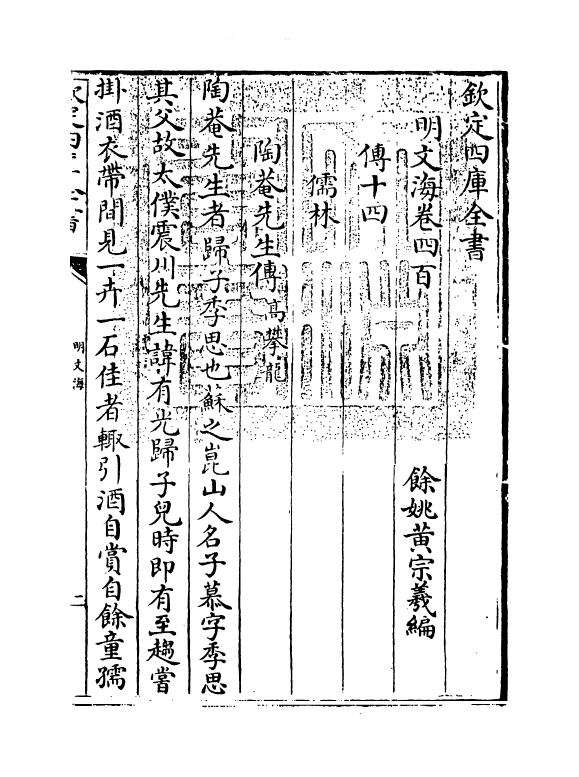 欽定四庫全書
明文海卷四百一　餘姚黃宗羲編
傳十四
儒林
陶菴先生傳 高攀龍
陶菴先生者歸子季思也蘇之崑山人名子慕字季思
其父故太僕震川先生諱有光歸子兒時即有至趣嘗
掛酒衣帶間見一卉一石佳者輙引酒自賞自餘童孺
明文海